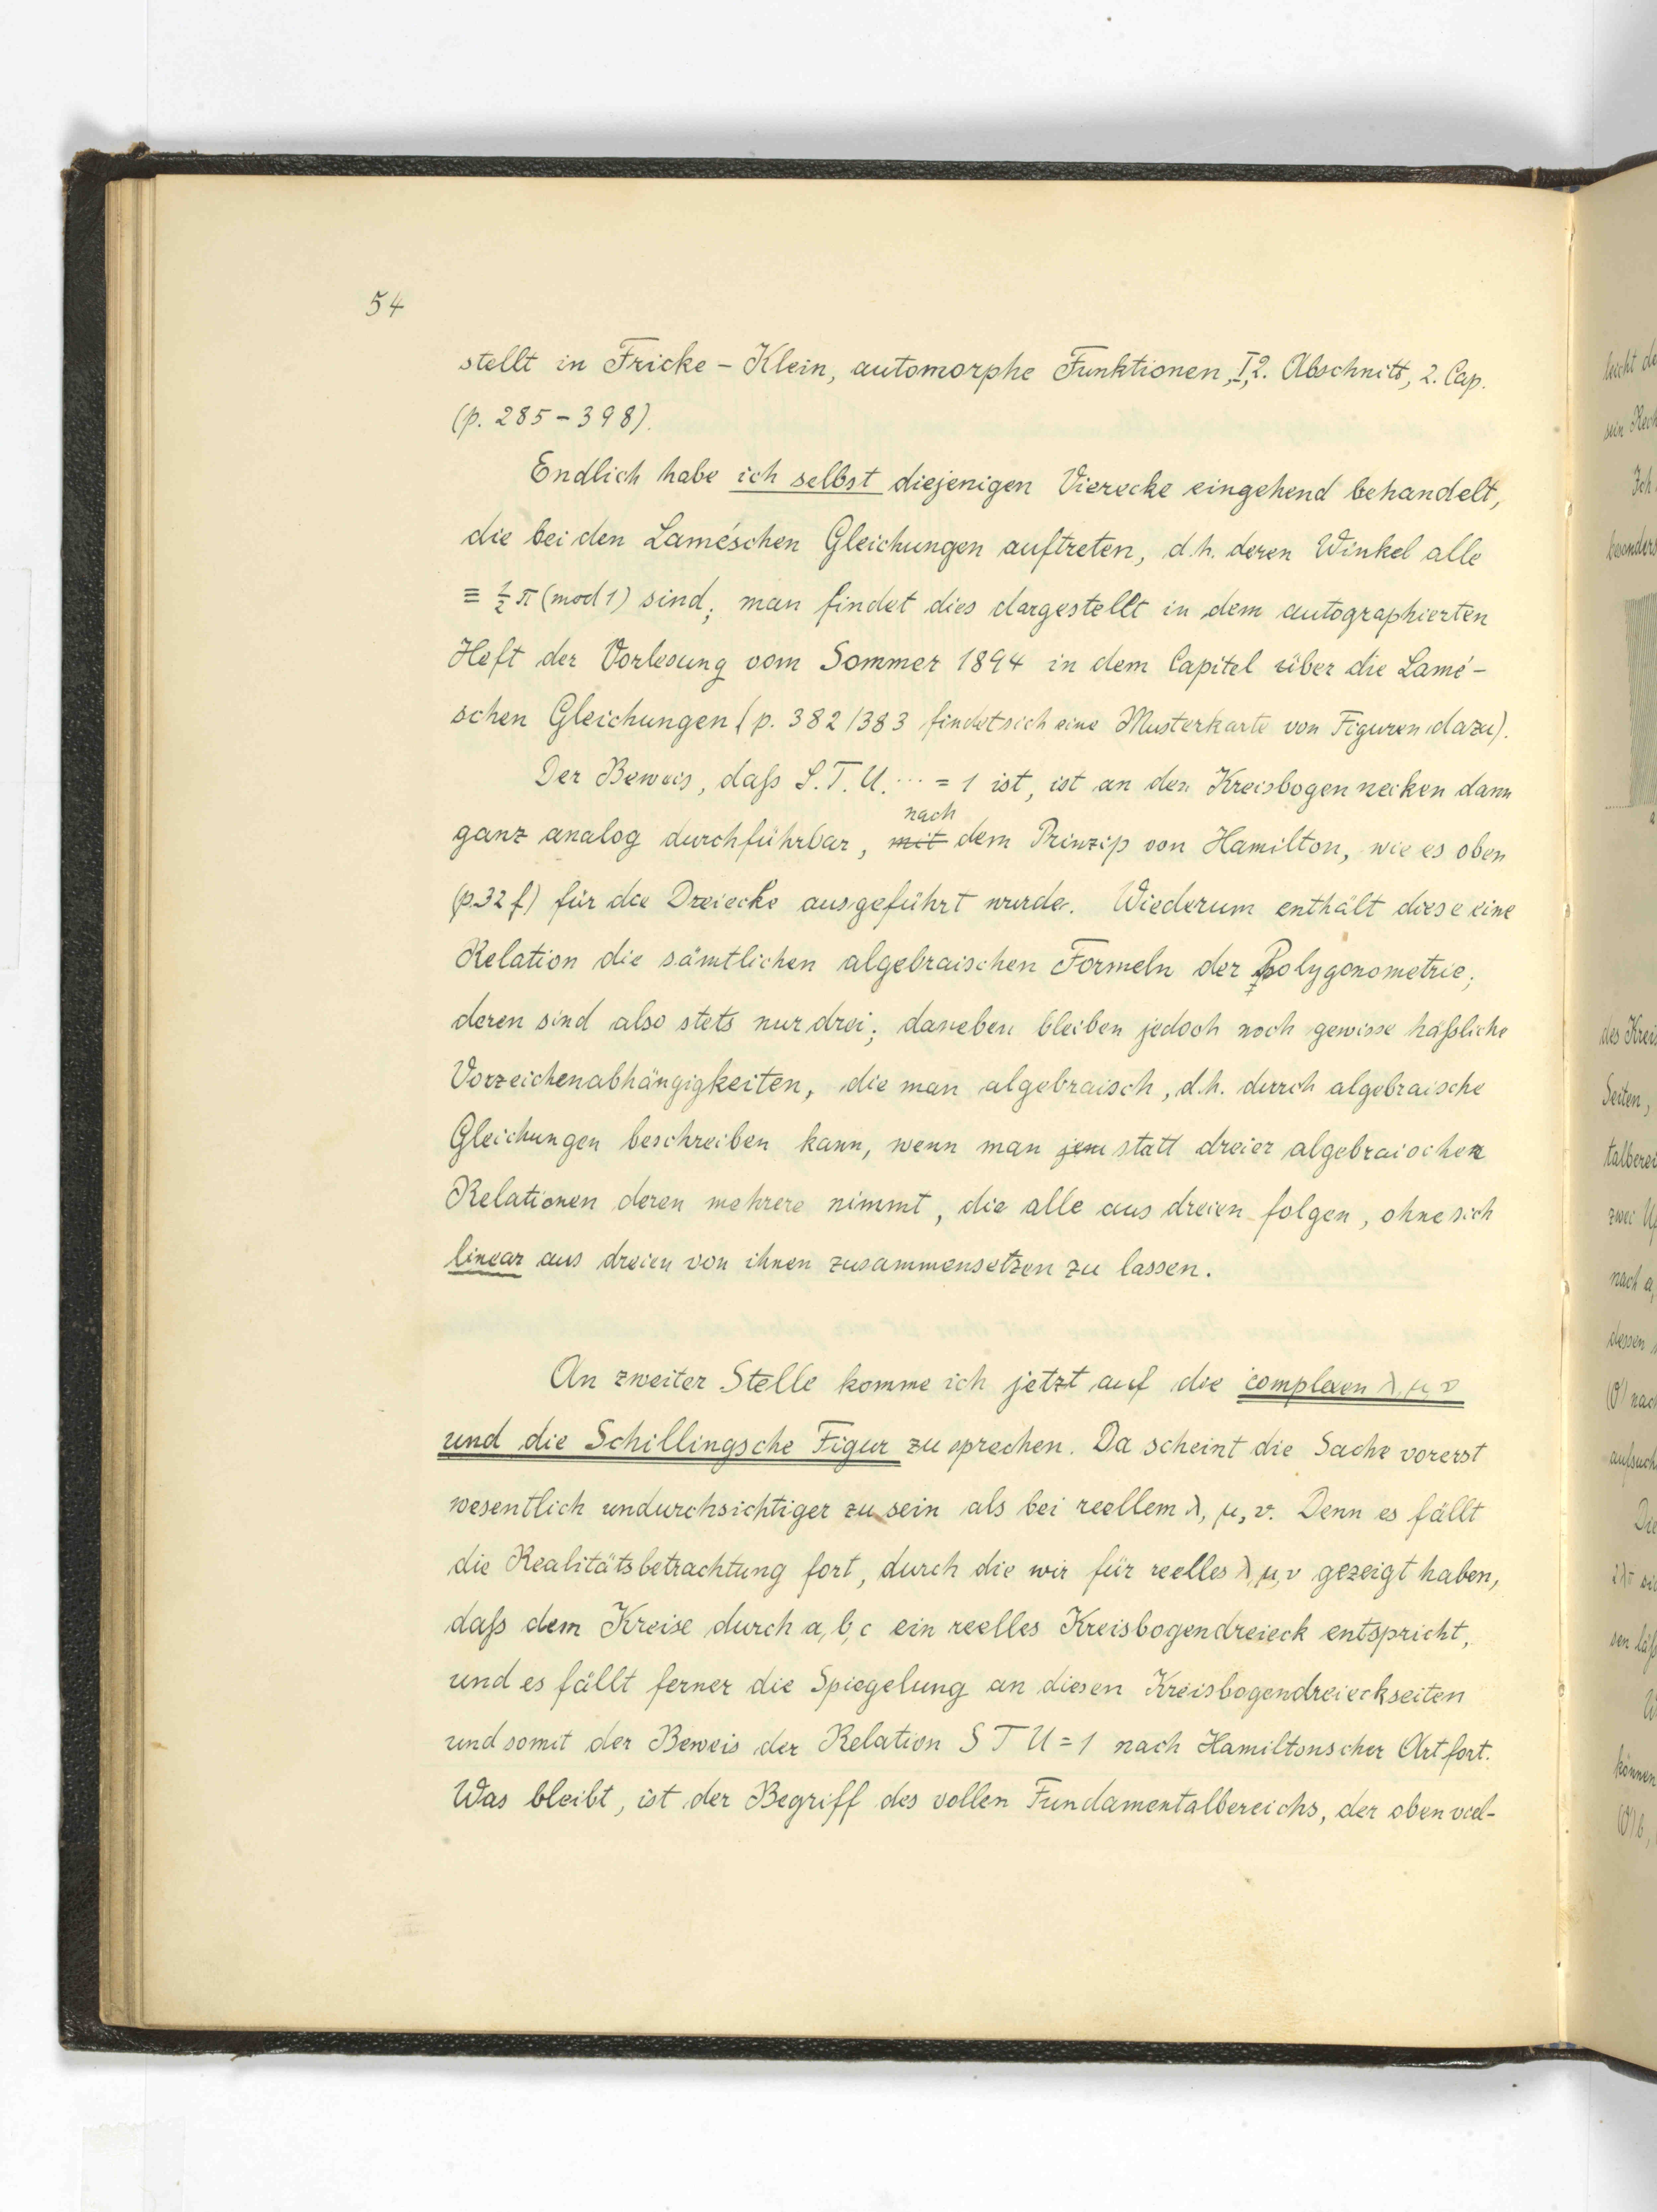 54
stellt in Fricke - Klein, automorphe Funktionen, I, 2. Abschnitt, 2. Cap.
(p. 285 - 398).
Endlich habe ich selbst diejenigen Vierecke eingehend behandelt,
die bei den Laméschen Gleichungen auftreten, d.h. deren Winkel alle
≡ ½ π (mod 1) sind; man findet dies dargestellt in dem autographierten
Heft der Vorlesung vom Sommer 1894 in dem Capitel über die Lamé-
schen Gleichungen (p. 382/383 findet sich eine Musterkarte von Figuren dazu).
Der Beweis, daß S.T.U. ... = 1 ist, ist an den Kreisbogen necken dann
nach
ganz analog durchführbar, mit dem Prinzip von Hamilton, wie es oben
(p. 32 f) für die Dreiecke ausgeführt wurde. Wiederum enthält diese eine
Relation die sämtlichen algebraischen Formeln der Polygonometrie;
deren sind also stets nur drei; daneben bleiben jedoch noch gewisse häßliche
Vorzeichenabhängigkeiten, die man algebraisch, d.h. durch algebraische
Gleichungen beschreiben kann, wenn man jene statt dreier algebraischer
Relationen deren mehrere nimmt, die alle aus dreien folgen, ohne sich
linear aus dreien von ihnen zusammensetzen zu lassen.
An zweiter Stelle komme ich jetzt auf die complexen λ, μ, ν
und die Schillingsche Figur zu sprechen. Da scheint die Sache vorerst
wesentlich undurchsichtiger zu sein als bei reellem λ, μ, ν. Denn es fällt
die Realitätsbetrachtung fort, durch die wir für reelles λ, μ, ν gezeigt haben,
daß dem Kreise durch a, b, c ein reelles Kreisbogendreieck entspricht,
und es fällt ferner die Spiegelung an diesen Kreisbogendreieckseiten
und somit der Beweis der Relation S T U = 1 nach Hamiltonscher Art fort.
Was bleibt, ist der Begriff des vollen Fundamentalbereichs, der oben viel-